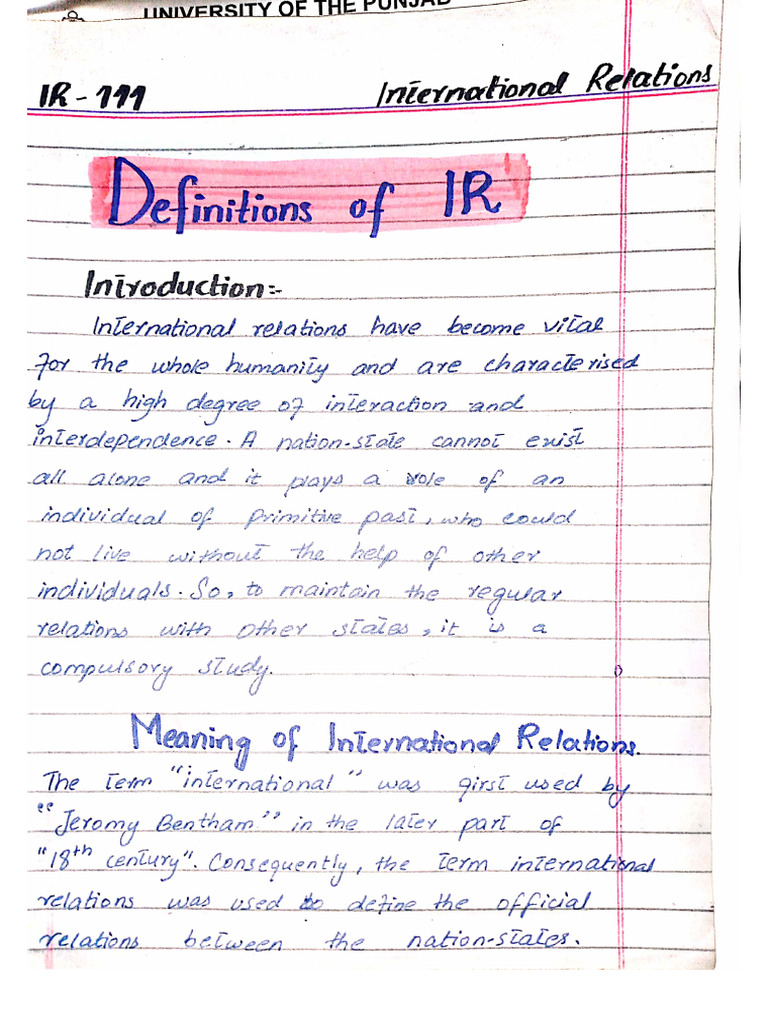 UNIVERSITY OF THE PUNJAB
IR-111 International Relations
Definitions of IR
Introduction:-
International relations have become vital
for the whole humanity and are characterised
by a high degree of interaction and
interdependence. A nation-state cannot exist
all alone and it plays a role of an
individual of primitive past, who could
not live without the help of other
individuals. So, to maintain the regular
relations with other states, it is a
compulsory study.
Meaning of International Relations.
The term "international" was first used by
"Jeromy Bentham" in the later part of
"18th century". Consequently, the term international
relations was used to define the official
relations between the nation-states.